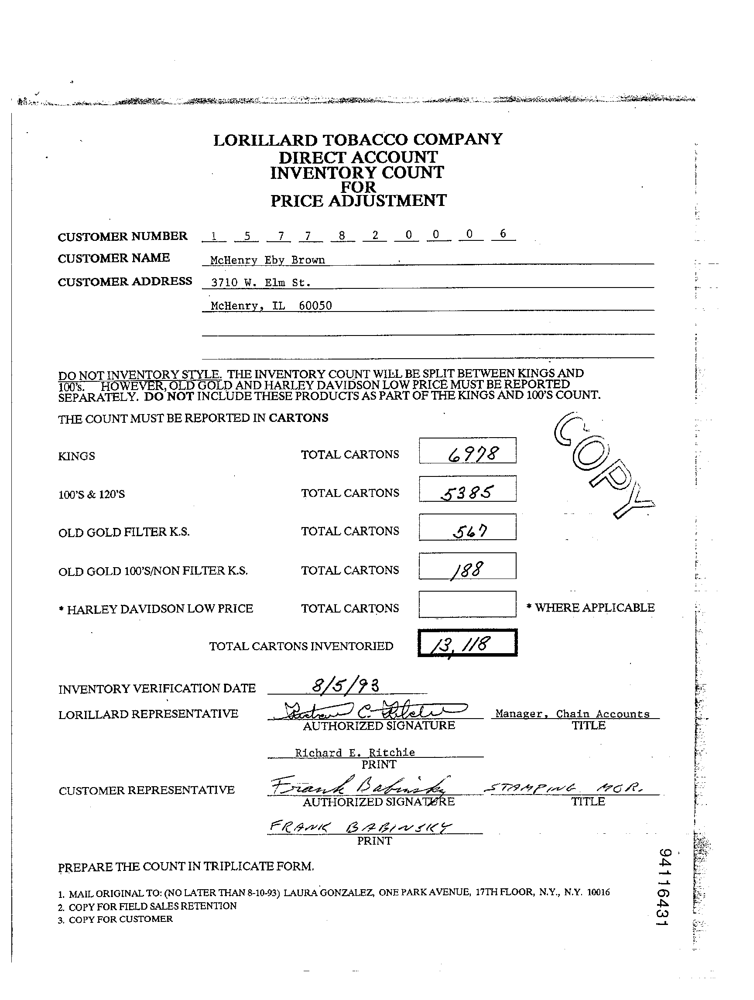 LORILLARD TOBACCO COMPANY
DIRECT ACCOUNT
INVENTORY COUNT
FOR
PRICE ADJUSTMENT
CUSTOMER NUMBER 1 5 7 7 8 2 0 0 0 6
CUSTOMER NAME McHenry Eby Brown
CUSTOMER ADDRESS 3710 W. Elm St.
McHenry, IL 60050
DO NOT INVENTORY STYLE. THE INVENTORY COUNT WILL BE SPLIT BETWEEN KINGS AND
100's. HOWEVER, OLD GOLD AND HARLEY DAVIDSON LOW PRICE MUST BE REPORTED
SEPARATELY. DO NOT INCLUDE THESE PRODUCTS AS PART OF THE KINGS AND 100'S COUNT.
THE COUNT MUST BE REPORTED IN CARTONS
COPY
KINGS TOTAL CARTONS 6978
100'S & 120'S TOTAL CARTONS 5385
OLD GOLD FILTER K.S. TOTAL CARTONS 567
OLD GOLD 100'S/NON FILTER K.S. TOTAL CARTONS 188
* HARLEY DAVIDSON LOW PRICE TOTAL CARTONS * WHERE APPLICABLE
TOTAL CARTONS INVENTORIED 13,118
INVENTORY VERIFICATION DATE 8/5/93
LORILLARD REPRESENTATIVE Manager, Chain Accounts
AUTHORIZED SIGNATURE TITLE
Richard E. Ritchie
PRINT
CUSTOMER REPRESENTATIVE Frank Babinsky STAMPING MGR.
AUTHORIZED SIGNATURE TITLE
FRANK BABINSKY
PRINT
PREPARE THE COUNT IN TRIPLICATE FORM.
1. MAIL ORIGINAL TO: (NO LATER THAN 8-10-93) LAURA GONZALEZ, ONE PARK AVENUE, 17TH FLOOR, N.Y., N.Y. 10016
2. COPY FOR FIELD SALES RETENTION
3. COPY FOR CUSTOMER
94116431